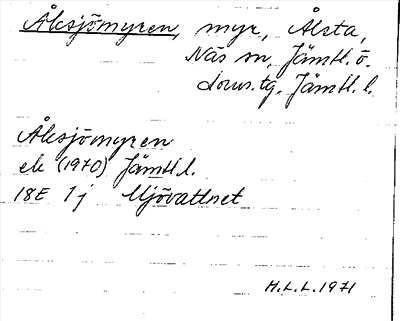 Åksjömyren, myr, Ålsta,
Näs sn, Jämtl. ö.
doms.tg. Jämtl. l.
Åksjömyren
ek (1970) Jämtl. l.
18E 1j Mjövattnet
H.L.L. 1971